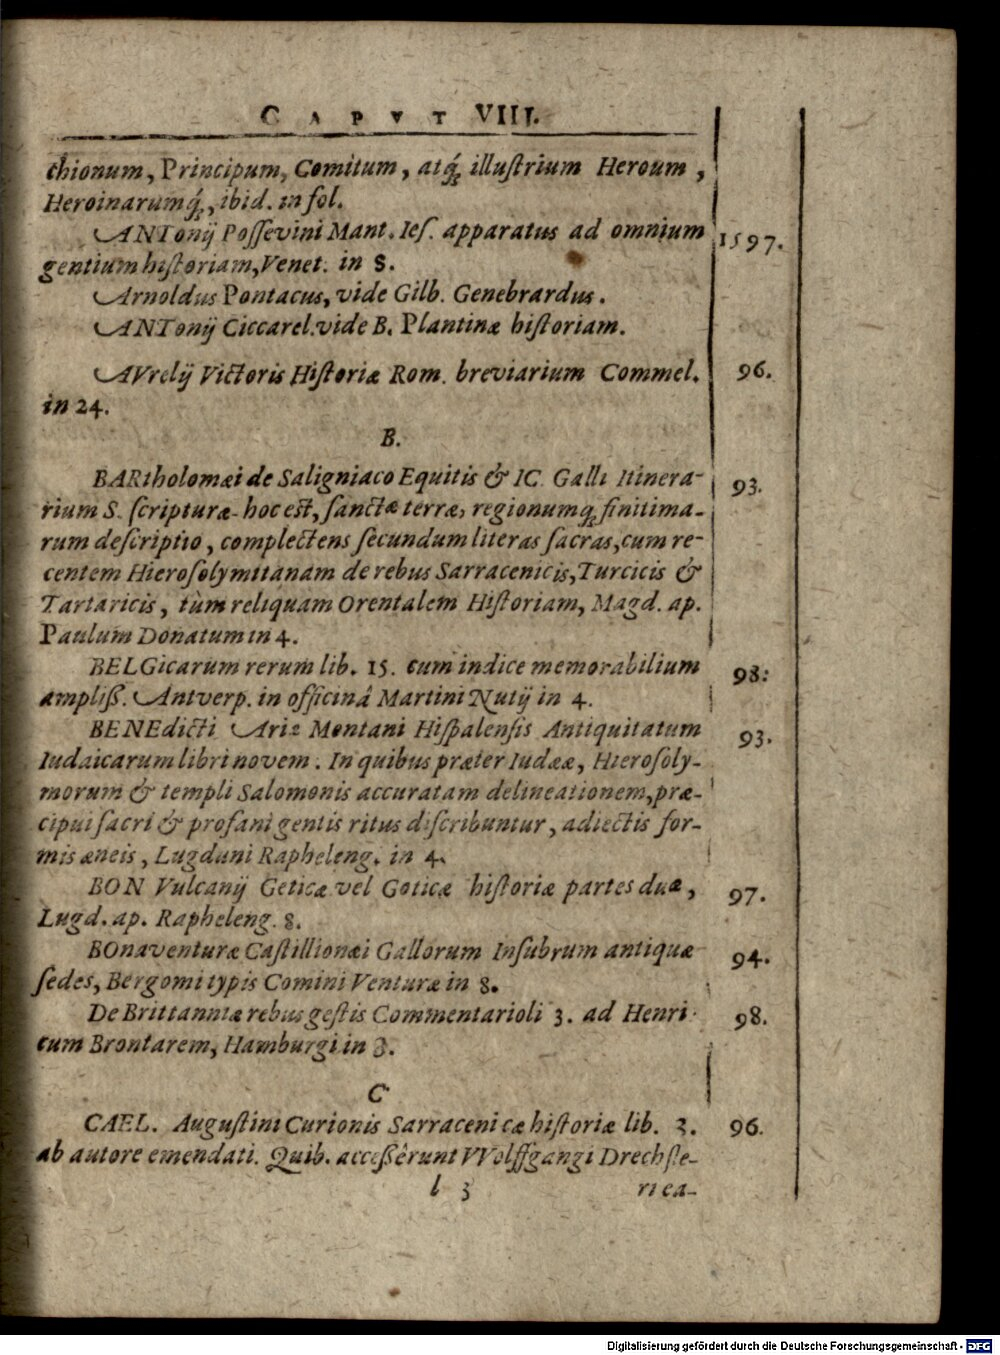 CAPVT VIII.
chionum, Principum, Comitum, atq́; illuſtrium Heroum,
Heroinarumq́;, ibid. in fol.
ANTonij Poſſevini Mant. Ieſ. apparatus ad omnium 1597.
gentium hiſtoriam, Venet. in 8.
Arnoldus Pontacus, vide Gilb. Genebrardus.
ANTonij Ciccarel. vide B. Plantinæ hiſtoriam.
AVrelij Victoris Hiſtoriæ Rom. breviarium Commel. 96.
in 24.
B.
BARtholomæi de Saligniaco Equitis & IC. Galli Itinera- 93.
rium S. ſcripturæ. hoc eſt, ſanctæ terræ, regionumq; finitima-
rum deſcriptio, complectens ſecundum literas ſacras, cum re-
centem Hieroſolymitanam de rebus Sarracenicis, Turcicis &
Tartaricis, tùm reliquam Orentalem Hiſtoriam, Magd. ap.
Paulum Donatum in 4.
BELGicarum rerum lib. 15. cum indice memorabilium 98.
ampliß. Antverp. in officinâ Martini Nutij in 4.
BENEdicti Ariæ Montani Hiſpalenſis Antiquitatum 93.
Iudaicarum libri novem. In quibus præter Iudææ, Hieroſoly-
morum & templi Salomonis accuratam delineationem, præ-
cipui ſacri & profani gentis ritus diſcribuntur, adiectis for-
mis æneis, Lugduni Rapheleng. in 4.
BON Vulcanij Geticæ vel Goticæ hiſtoriæ partes duæ, 97.
Lugd. ap. Rapheleng. 8.
BOnaventuræ Caſtillionæi Gallorum Inſubrum antiquæ 94.
ſedes, Bergomi typis Comini Venturæ in 8.
De Brittanniæ rebus geſtis Commentarioli 3. ad Henri- 98.
cum Brontarem, Hamburgi in 3.
C
CAEL. Auguſtini Curionis Sarracenicæ hiſtoriæ lib. 3. 96.
ab autore emendati. Quib. acceßêrunt VVolffgangi Drechſle-
l 3 ri ea-
Digitalisierung gefördert durch die Deutsche Forschungsgemeinschaft - DFG